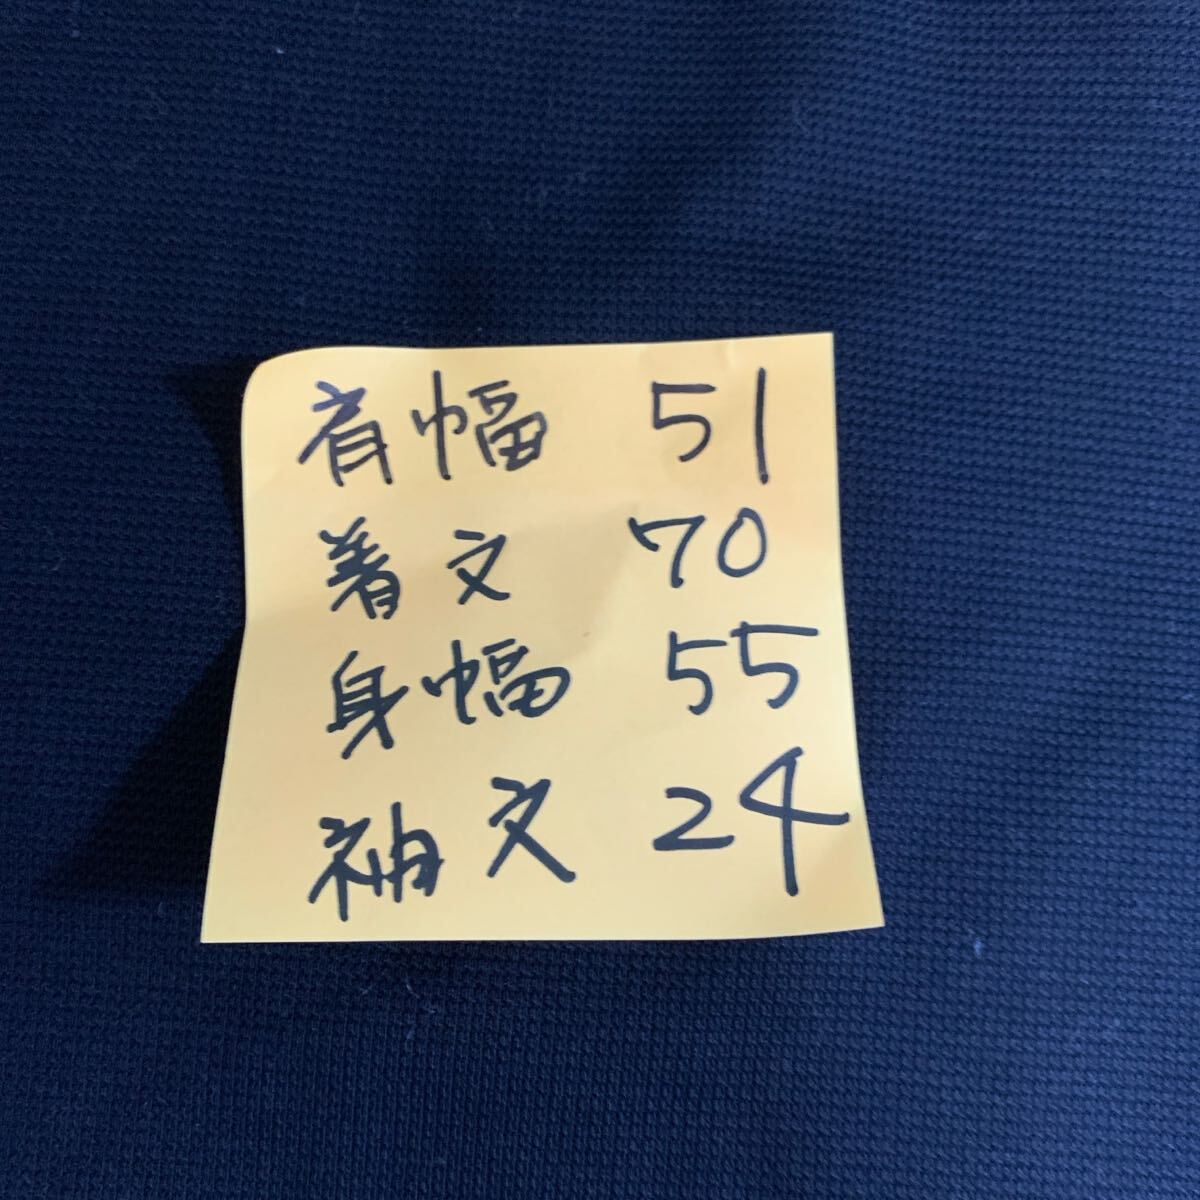 肩幅 51
着文 70
身幅 55
袖文 24